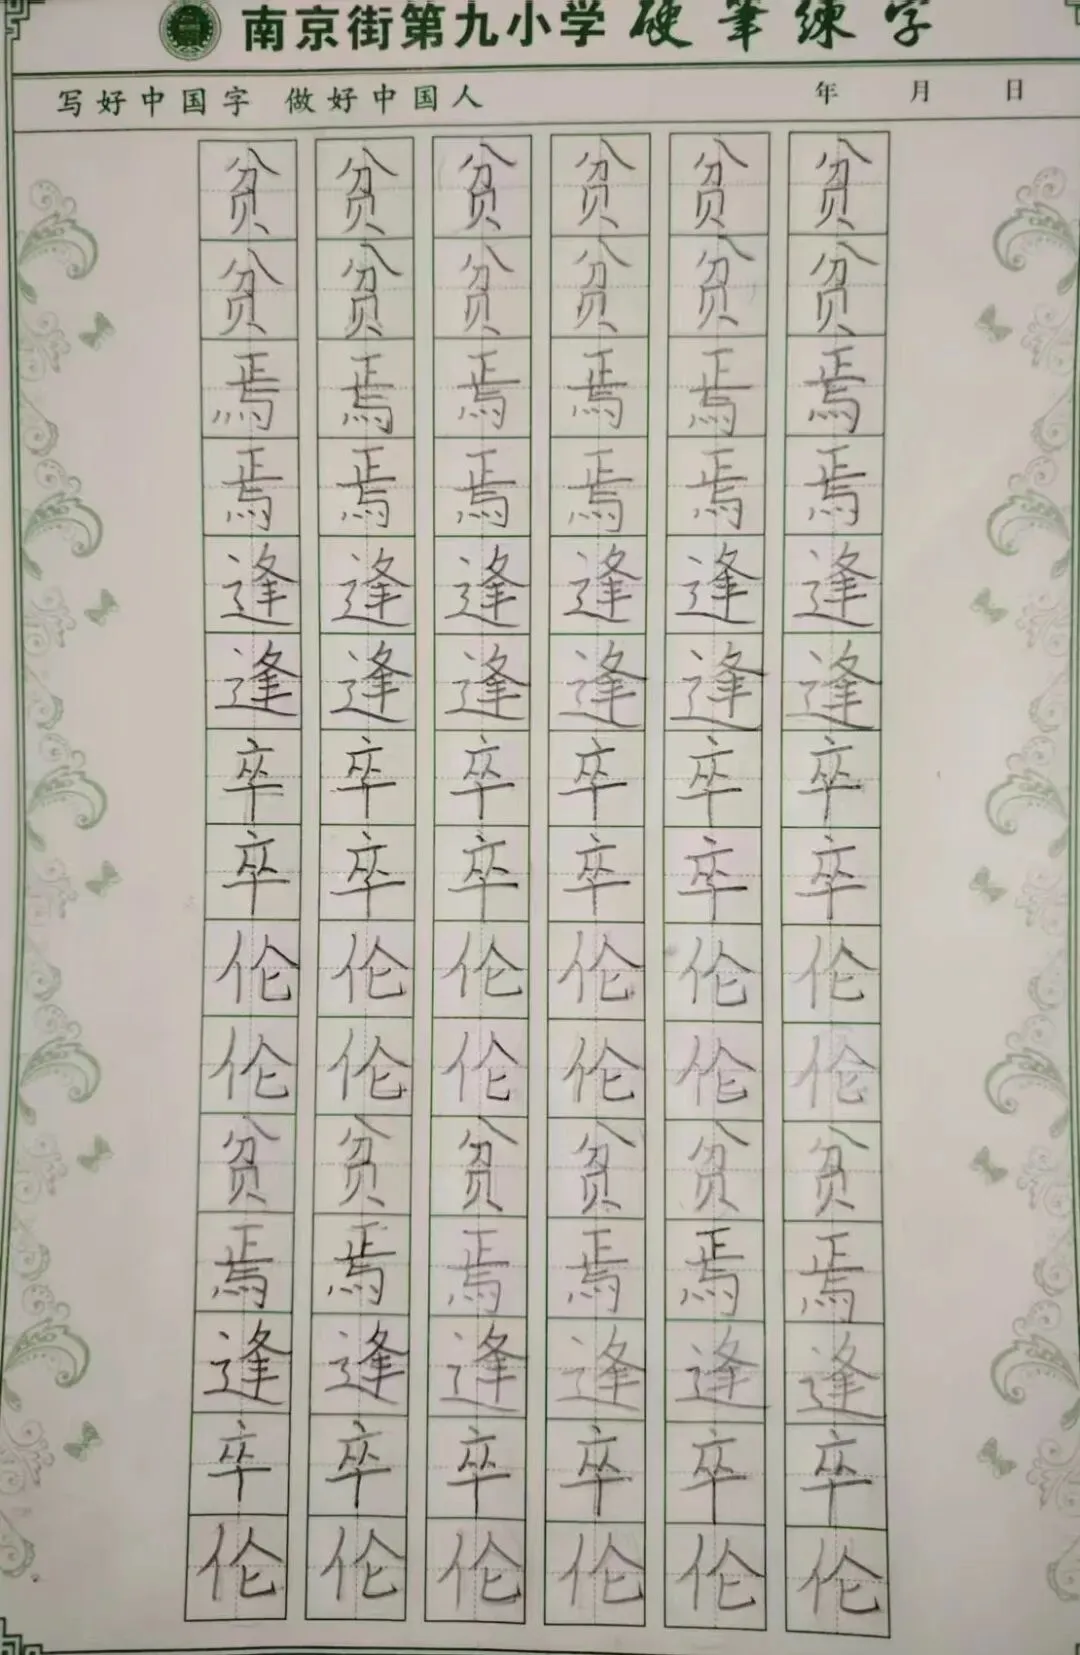 南京街第九小学 硬筆練字
写好中国字 做好中国人 年 月 日
贫 贫 贫 贫 贫 贫
贫 贫 贫 贫 贫 贫
焉 焉 焉 焉 焉 焉
焉 焉 焉 焉 焉 焉
逢 逢 逢 逢 逢 逢
逢 逢 逢 逢 逢 逢
卒 卒 卒 卒 卒 卒
卒 卒 卒 卒 卒 卒
伦 伦 伦 伦 伦 伦
伦 伦 伦 伦 伦 伦
贫 贫 贫 贫 贫 贫
焉 焉 焉 焉 焉 焉
逢 逢 逢 逢 逢 逢
卒 卒 卒 卒 卒 卒
伦 伦 伦 伦 伦 伦